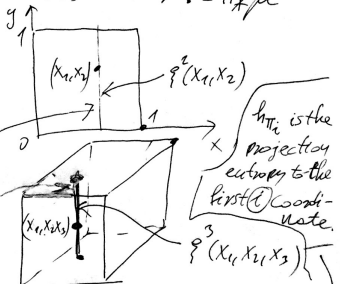 y
1
(x₁,x₂)
ξ²(x₁,x₂)
0
1
x
h_πᵢ is the
projection
entropy to the
first i coordi-
nate.
(x₁,x₂,x₃)
ξ³(x₁,x₂,x₃)